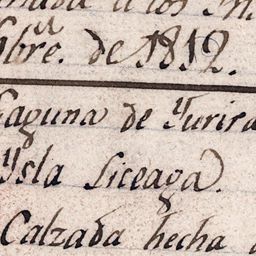 a los
bre. de 1812.
Laguna de Yurira
Ysla Liceaga.
Calzada hecha